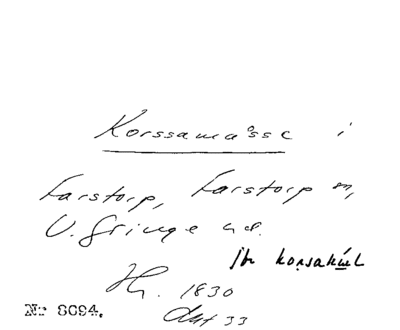 Korssamåsse i
Farstorp, Farstorp sn,
V. Göinge hd.
jfr korsakùl
Hr. 1830
Nr 8094.